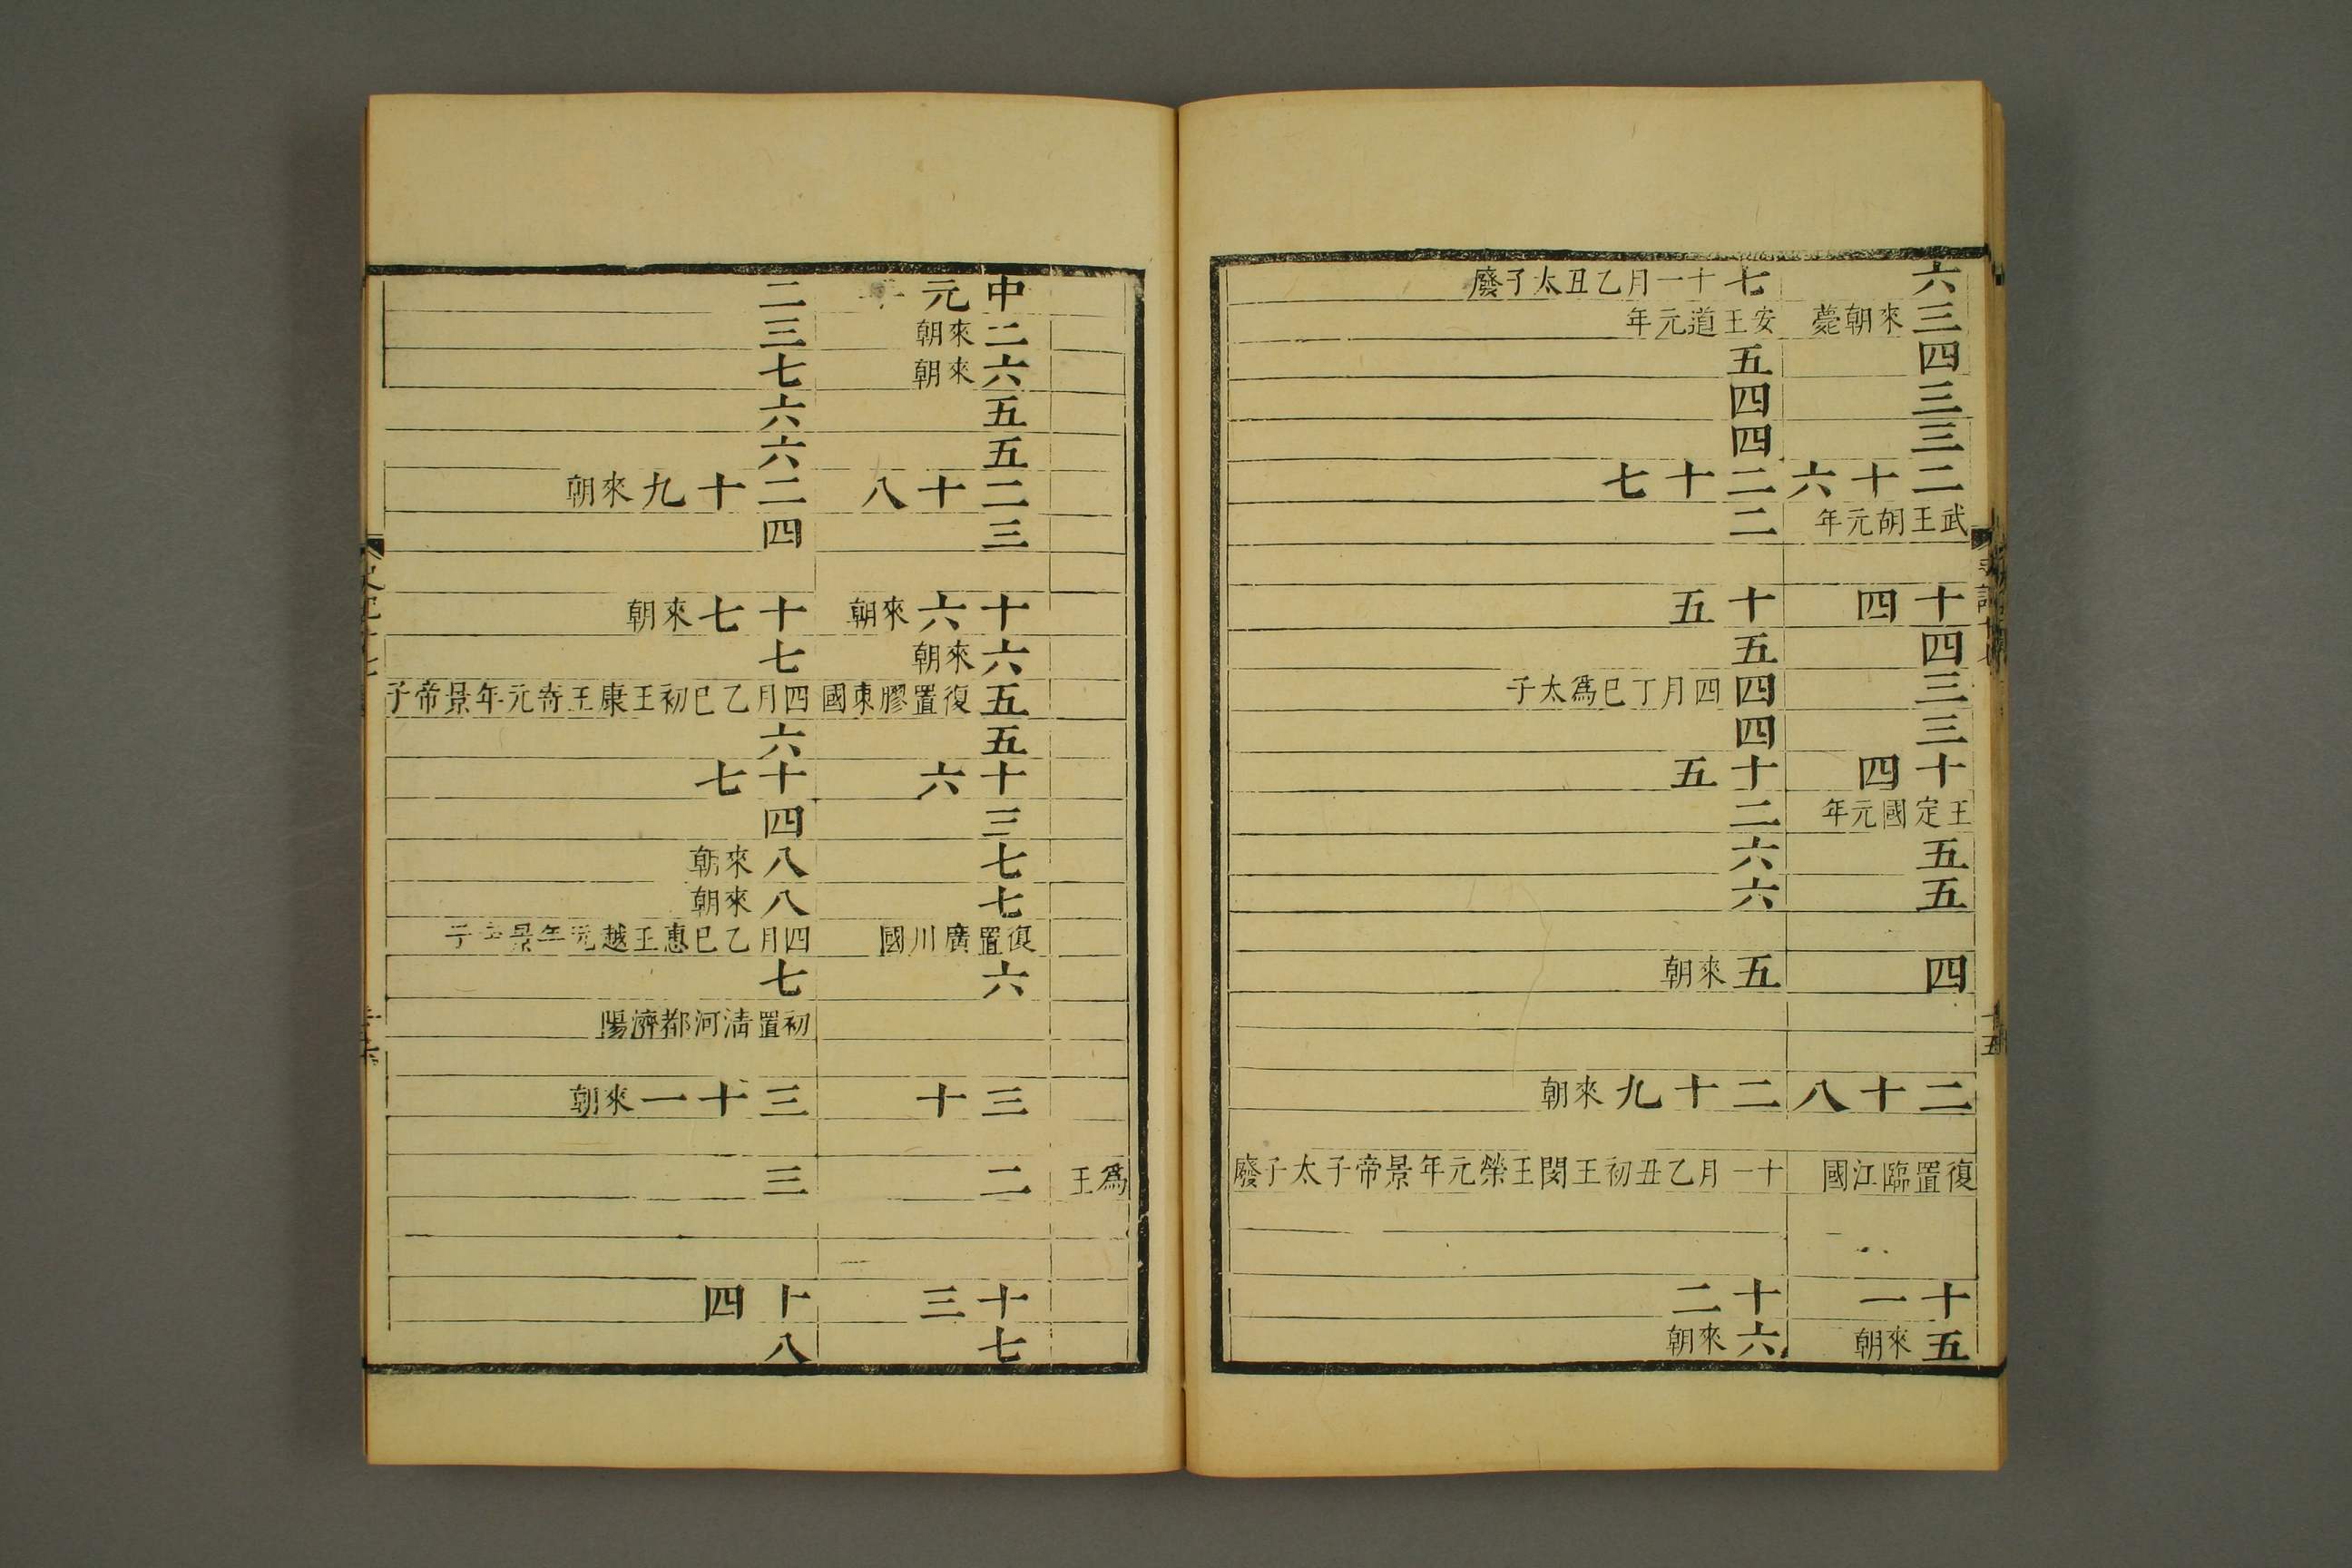 六
三來朝薨
四
三
三
二十六
武王胡元年
十四
四
三
三
十四
王定國元年
五
五
四
二十八
復置臨江國
十一
五來朝
七十一月乙丑太子廢
安王道元年
五
四
四
二十七
二
十五
五
四四月丁巳爲太子
四
十五
二
六
六
五來朝
二十九來朝
十一月乙丑初王閔王榮元年景帝子太子廢
十二
六來朝
十五
爲王
中元
二來朝
六來朝
五
五
二十八
三
十六來朝
六來朝
五復置膠東國
五
十六
三
七
七
復置廣川國
六
三十
二
十三
七
二
三
七
六
六
二十九來朝
四
十七來朝
七
四月乙巳初王康王寄元年景帝子
六
十七
四
八來朝
八來朝
四月乙巳惠王越元年景子
七
初置清河都濟陽
三十一來朝
三
十四
八